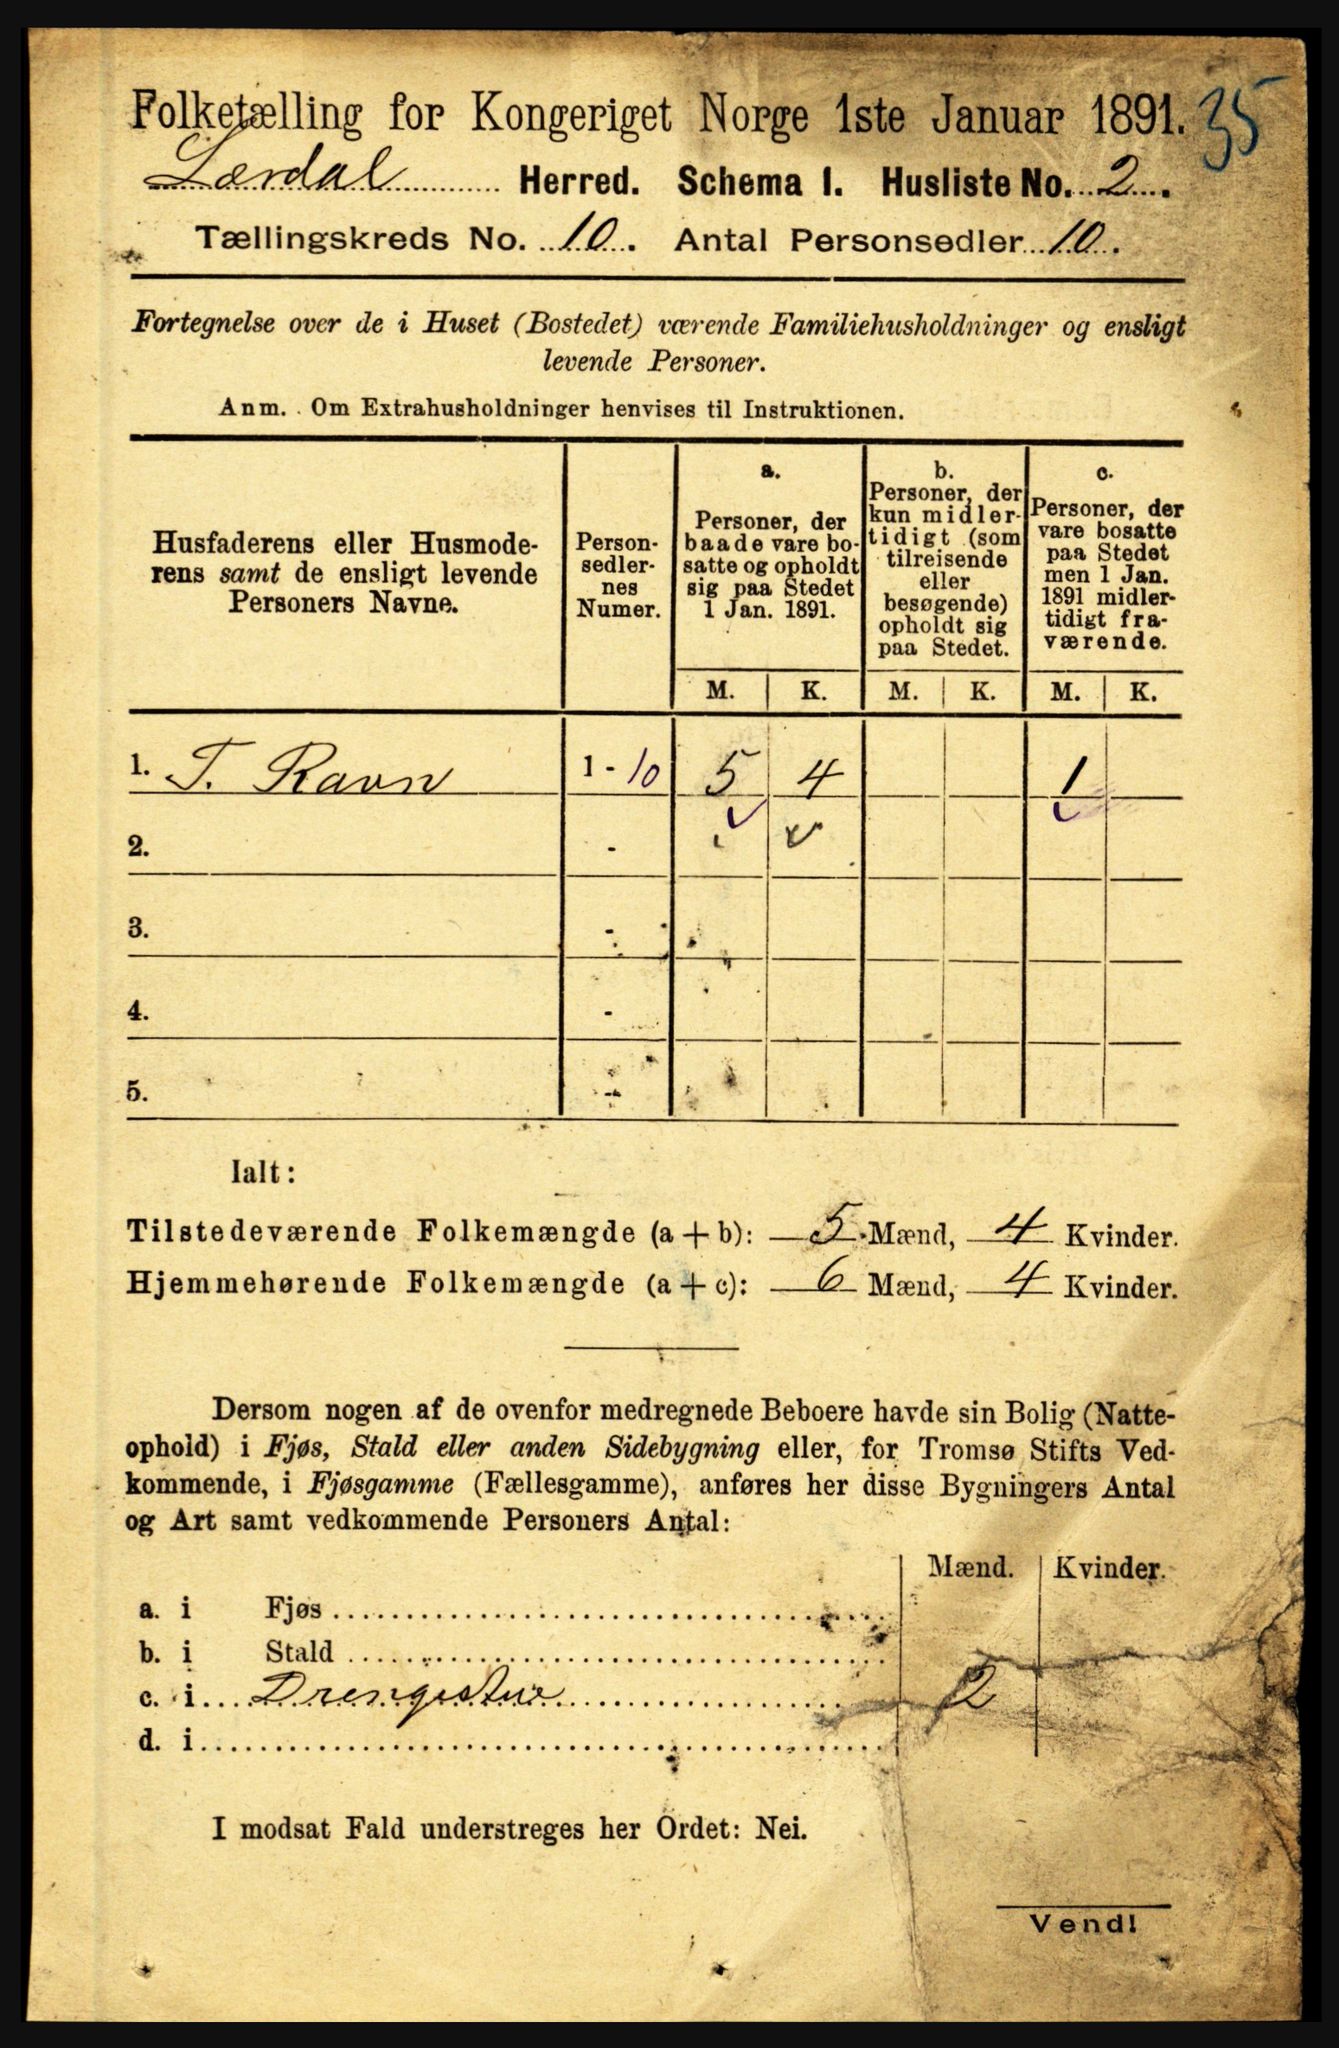 Folketælling for Kongeriget Norge 1ste Januar 1891.
35
Lærdal Herred. Schema I. Husliste No. 2.
Tællingskreds No. 10. Antal Personsedler 10.
Fortegnelse over de i Huset (Bostedet) værende Familiehusholdninger og ensligt
levende Personer.
Anm. Om Extrahusholdninger henvises til Instruktionen.
Husfaderens eller Husmode-
rens samt de ensligt levende
Personers Navne.
Person-
sedler-
nes
Numer.
a.
Personer, der
baade vare bo-
satte og opholdt
sig paa Stedet
1 Jan. 1891.
b.
Personer, der
kun midler-
tidigt (som
tilreisende
eller
besøgende)
opholdt sig
paa Stedet.
c.
Personer, der
vare bosatte
paa Stedet
men 1 Jan.
1891 midler-
tidigt fra-
værende.
M. K. M. K. M. K.
1. T. Ravn 1 - 10 5 4 1
2. -
3. -
4. -
5. -
Ialt:
Tilstedeværende Folkemængde (a + b): 5 Mænd, 4 Kvinder.
Hjemmehørende Folkemængde (a + c): 6 Mænd, 4 Kvinder.
Dersom nogen af de ovenfor medregnede Beboere havde sin Bolig (Natte-
ophold) i Fjøs, Stald eller anden Sidebygning eller, for Tromsø Stifts Ved-
kommende, i Fjøsgamme (Fællesgamme), anføres her disse Bygningers Antal
og Art samt vedkommende Personers Antal:
Mænd. Kvinder.
a. i Fjøs
b. i Stald
c. i Drengestue 2
d. i
I modsat Fald understreges her Ordet: Nei.
Vend!